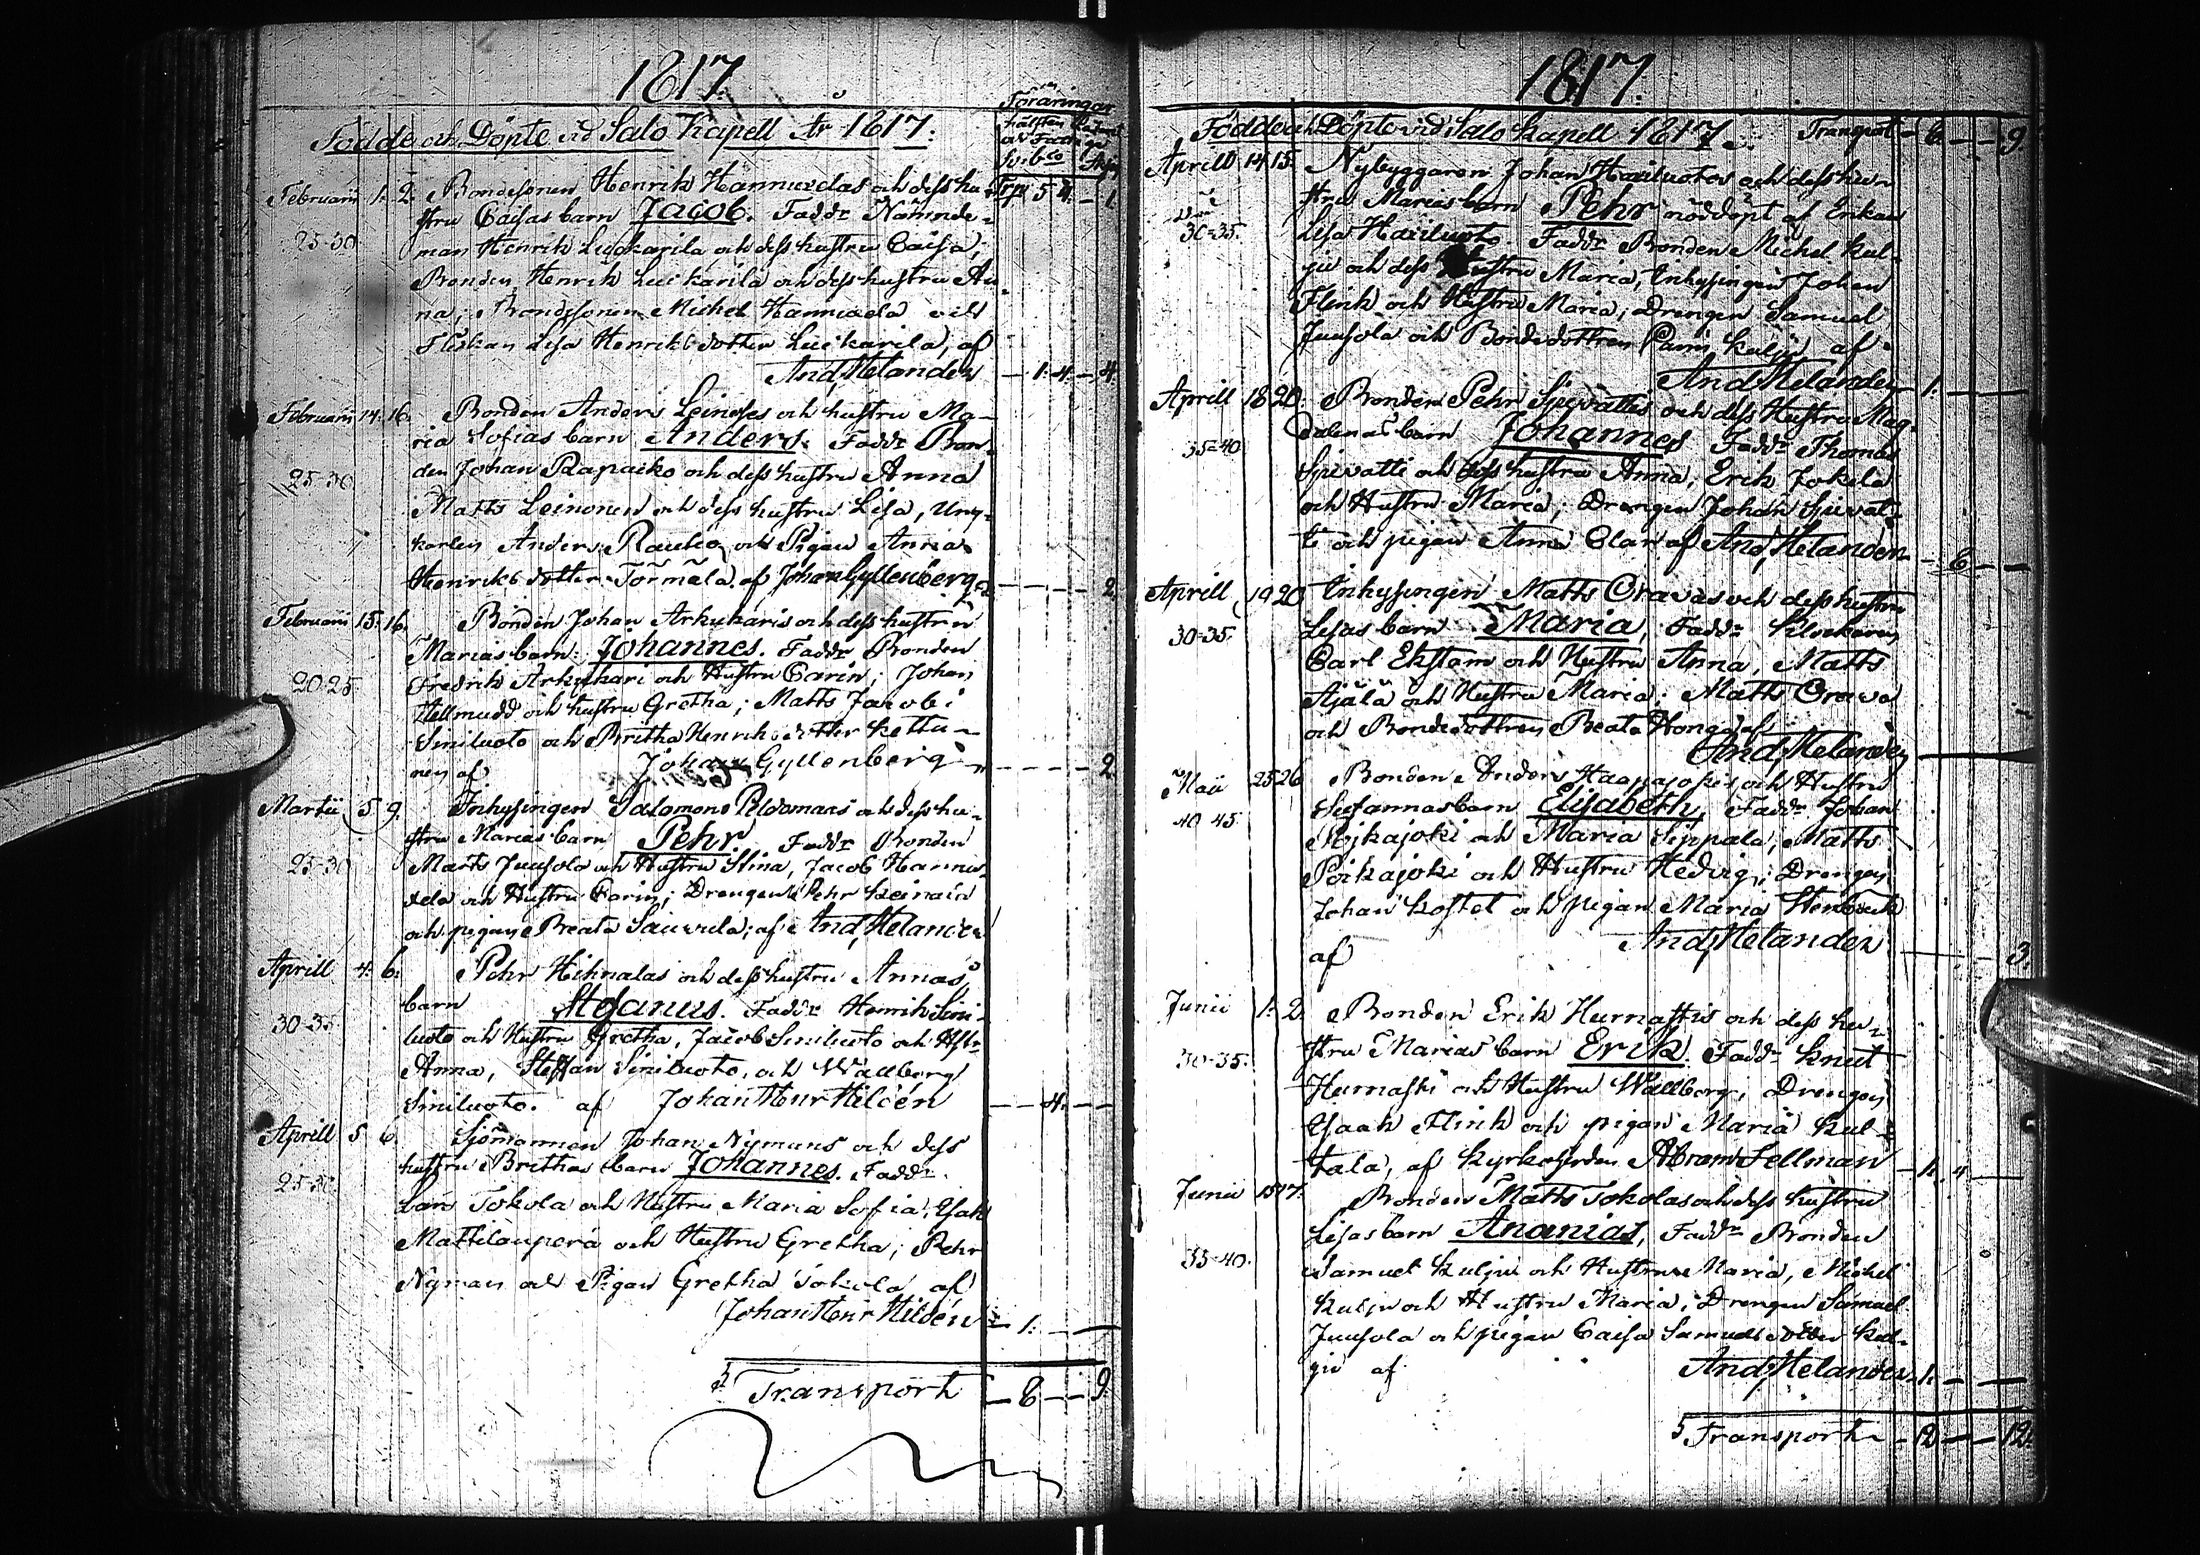 1817.
Föräringar
Födde och Döpte vid Salo Kapell År 1817.
Februarii 1. 2. Bondesonen Henrik Hannuxelas och dess hu-
stru Caisas barn Jacob. Faddr Nämnde-
25-30
man Henrik Luckarila och dess hustru Caisa;
Bonden Henrik Luckarila och dess hustru An-
na; Bondesonen Michel Hannuxela och
Flickan Lisa Henriksdotter Luckarila, af
And. Helander — 1. 4. — 4
Februarii 14. 16. Bonden Anders Leinoses och hustru Ma-
ria Sofias barn Anders. Faddr Bon-
den Johan Rapacko och dess hustru Anna
25-30
Matts Leinonen och dess hustru Lisa, Ung-
karlen Anders Rautio och Pigan Anna
Henriks dotter Törmälä. af Johan Gyllenberg 2
Februarii 15. 16. Bonden Johan Arkukaris och dess hustru
Marias barn: Johannes. Faddr Bonden
Fredrik Arkukari och Hustru Carin; Johan
20-25
Hellmudd och hustru Gretha; Matts Jacobs
Siniluoto och Britha Henriksdotter Kettu-
nen af Johan Gyllenberg 2
Martii 5 9. Inhysingen Salomon Peldomans och dess hu-
stru Marias barn Pehr. Faddr Bonden
25-30
Matts Juusola och Hustru Stina, Jacob Hannu-
xela och Hustru Carin; Drengen Pehr Keinaiä
och pigan Beata Sauvula; af And. Helander
Aprill 4. 6. Pehr Hihnalas och dess hustru Annas
barn Stefanus. Faddr Henrik Sini-
30-35
luoto och Hustru Gretha, Jacob Siniluoto och Hstr
Anna, Steffan Siniluoto, och Wallborg
Siniluoto. af Johan Henr Hildén — 4. —
Aprill 5 6. Sjömannen Johan Nymans och dess
hustru Brithas barn Johannes. Faddr
25-30
Lars Tokola och Hustru Maria Sofia, Isak
Mattilanperä och Hustru Gretha; Pehr
Nyman och Pigan Gretha Tokola, af
Johan Henr Hildén — 1. —
Transport — 8 — 9.
1817.
Födde och Döpte vid Salo Kapell 1817. Transport — 8. — 9.
Aprill 14 15. Nybyggaren Johan Hailuotos och dess hu-
stru Marias barn Pehr nöddöpt af Enkan
30-35.
Lisa Hailuoto. Faddr Bonden Michel Kul-
ju och dess Hustru Maria, Inhysingen Johan
Flink och Hustru Maria; Drengen Samuel
Juusola och Bondedottren Carin Kulju af
And Helander — 1. —
Aprill 18 20. Bonden Pehr Spivattis och dess Hustru Mag-
dalenas barn Johannes Faddr Thomas
35-40
Spivatti och dess hustru Anna, Erik Jokela
och Hustru Maria; Drengen Johan Spivat-
ti och pigan Anna Elar af And Helander — 8 —
Aprill 19 20 Inhysingen Matts Oravas och dess hustru
Lisas barn Maria, Faddr Klockaren
30-35.
Carl Ekstam och Hustru Anna, Matts
Ajälä och Hustru Maria; Matts Orava
och Bondedottren Beata Honga af
And Helander
Maii 25 26 Bonden Anders Haapajokis och Hustru
Susannas barn Elisabeth, Faddr Johan
40 45.
Poikajoki och Maria Sippala, Matts
Poikajoki och Hustru Hedvig; Drengen
Johan Kostet och pigan Maria Stenbeck
af And Helander — 3.
Junii 1. 2 Bonden Erik Hurnastis och dess hu-
stru Marias barn Erik. Faddr Knut
30-35.
Hurnasti och Hustru Wallborg; Drengen
Isaak Flink och pigan Maria Kul-
tala, af Kyrkoherden Abram Fellman — 1. 4 —
Junii 15 17. Bonden Matts Tokolas och dess hustru
Lisas barn Ananias, Faddr Bonden
35-40.
Samuel Kulju och Hustru Maria, Michel
Kulju och Hustru Maria; Drengen Samuel
Juusola och pigan Caisa Samuels dotter Kul-
ju af And Helander — 1. —
Transport — 12 — 12.